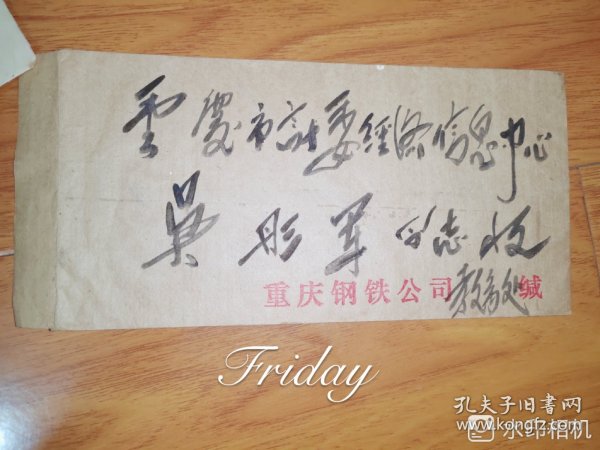 重庆市計委經济信息中心
吴彤军同志收
重庆钢铁公司教务处缄
Friday
孔夫子旧书网
www.kongfz.com
水印相机